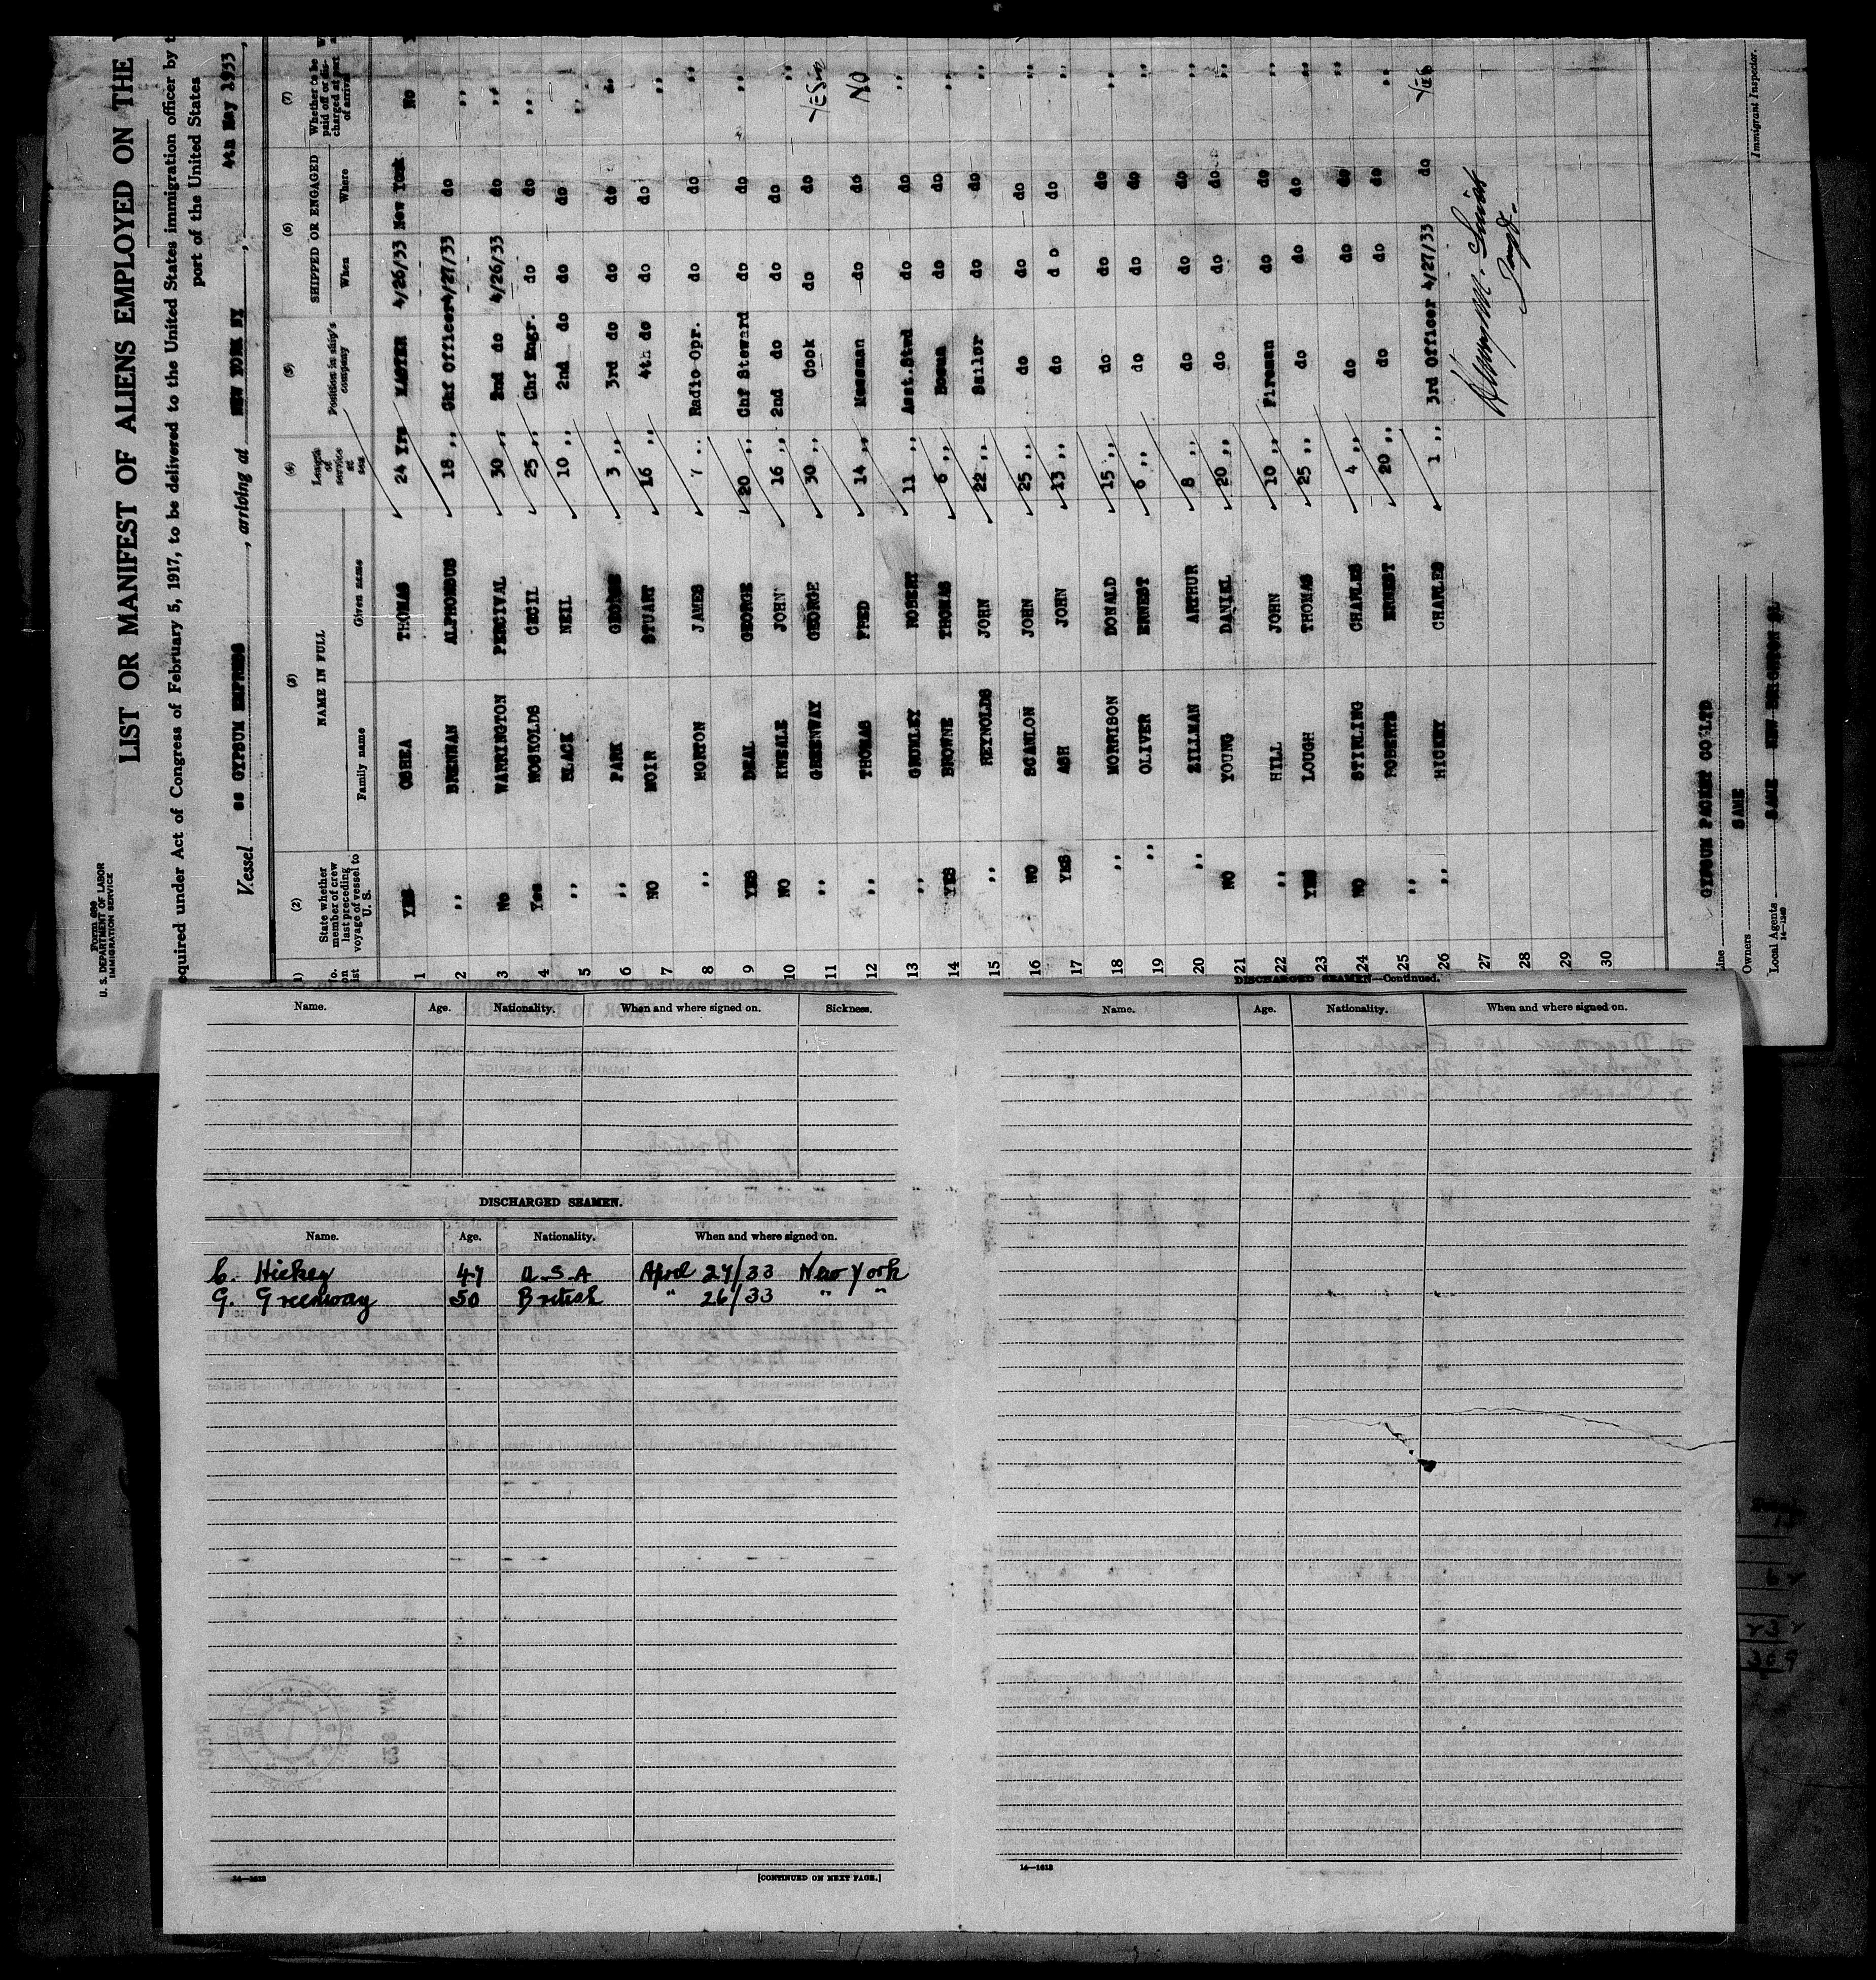 Form 680
U. S. DEPARTMENT OF LABOR
IMMIGRATION SERVICE
LIST OR MANIFEST OF ALIENS EMPLOYED ON THE
equired under Act of Congress of February 5, 1917, to be delivered to the United States immigration officer by
port of the United States
Vessel ss GYPSUM EMPRESS , arriving at NEW YORK NY , 4th May 1933 ,
(2) (3) (4) (5) (6) (7)
State whether member of crew on last preceding voyage of vessel to U. S. NAME IN FULL Length of service at sea Position in ship's company SHIPPED OR ENGAGED Whether to be paid off or discharged at port of arrival
Family name Given name When Where
1 YES OSHEA THOMAS 24 Yrs MASTER 4/26/33 New York No
2 ,, BRENNAN ALPHONSUS 18 ,, Chf Officer 4/27/33 do ,,
3 No WARRINGTON PERCIVAL 30 ,, 2nd do 4/26/33 do ,,
4 Yes NOSWOLDS CECIL 25 ,, Chf Engr. do do ,,
5 ,, BLACK NEIL 10 ,, 2nd do do do ,,
6 ,, PARK GEORGE 3 ,, 3rd do do do ,,
7 NO MOIR STUART 16 ,, 4th do do do ,,
8 ,, MORTON JAMES 7 ,, Radio Opr. do do ,,
9 YES DEAL GEORGE 20 ,, Chf Steward do do ,,
10 NO KNEALE JOHN 16 ,, 2nd do do do ,,
11 ,, GREENWAY GEORGE 30 ,, Cook do do YES
12 ,, THOMAS FRED 14 ,, Messman do do NO
13 ,, GRUMLEY ROBERT 11 ,, Asst.Stwd do do ,,
14 YES BROWNE THOMAS 6 ,, Bosun do do ,,
15 ,, REYNOLDS JOHN 22 ,, Sailor do do ,,
16 NO SCANLON JOHN 25 ,, do do do ,,
17 YES ASH JOHN 13 ,, do do do ,,
18 ,, MORRISON DONALD 15 ,, do do do ,,
19 ,, OLIVER ERNEST 6 ,, do do do ,,
20 ,, ZILLMAN ARTHUR 8 ,, do do do ,,
21 NO YOUNG DANIEL 20 ,, do do do ,,
22 ,, HILL JOHN 10 ,, Fireman do do ,,
23 YES LOUGH THOMAS 25 ,, do do do ,,
24 NO STIRLING CHARLES 4 ,, do do do ,,
25 ,, ROBERTS ERNEST 20 ,, do do do ,,
26 ,, HICKEY CHARLES 1 ,, 3rd Officer 4/27/33 do YES
27
28
29
30
Line GYPSUM PACKET CO LTD
Owners SAME
Local Agents SAME NEW BRIGHTON SI
14—1240
Immigrant Inspector.
Name. Age. Nationality. When and where signed on. Sickness.
DISCHARGED SEAMEN.
Name. Age. Nationality. When and where signed on.
C. Hickey 47 U.S.A April 27/33 New York
G. Greenway 50 British " 26/33 " "
14—1613
[CONTINUED ON NEXT PAGE.]
DISCHARGED SEAMEN—Continued.
Name. Age. Nationality. When and where signed on.
14—1613